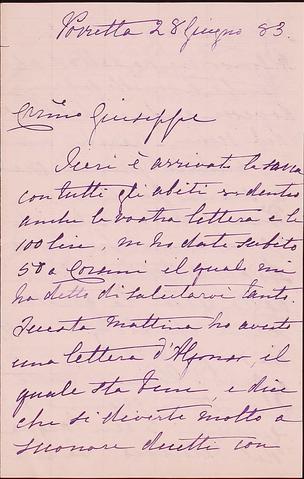 Porretta 28 Giugno 83.
Cr̃mo Giuseppe
Ieri è arrivato la
con tutti gli abiti e dentro
anche la vostra lettera e le
100 lire, ne ho date subito
50 a Corsini il quale mi
ha detto di salutarvi tanto.
Questa mattina ho avuto
una lettera d'Alfonso, il
quale sta bene, e dice
che si diverte molto a
suonare duetti con